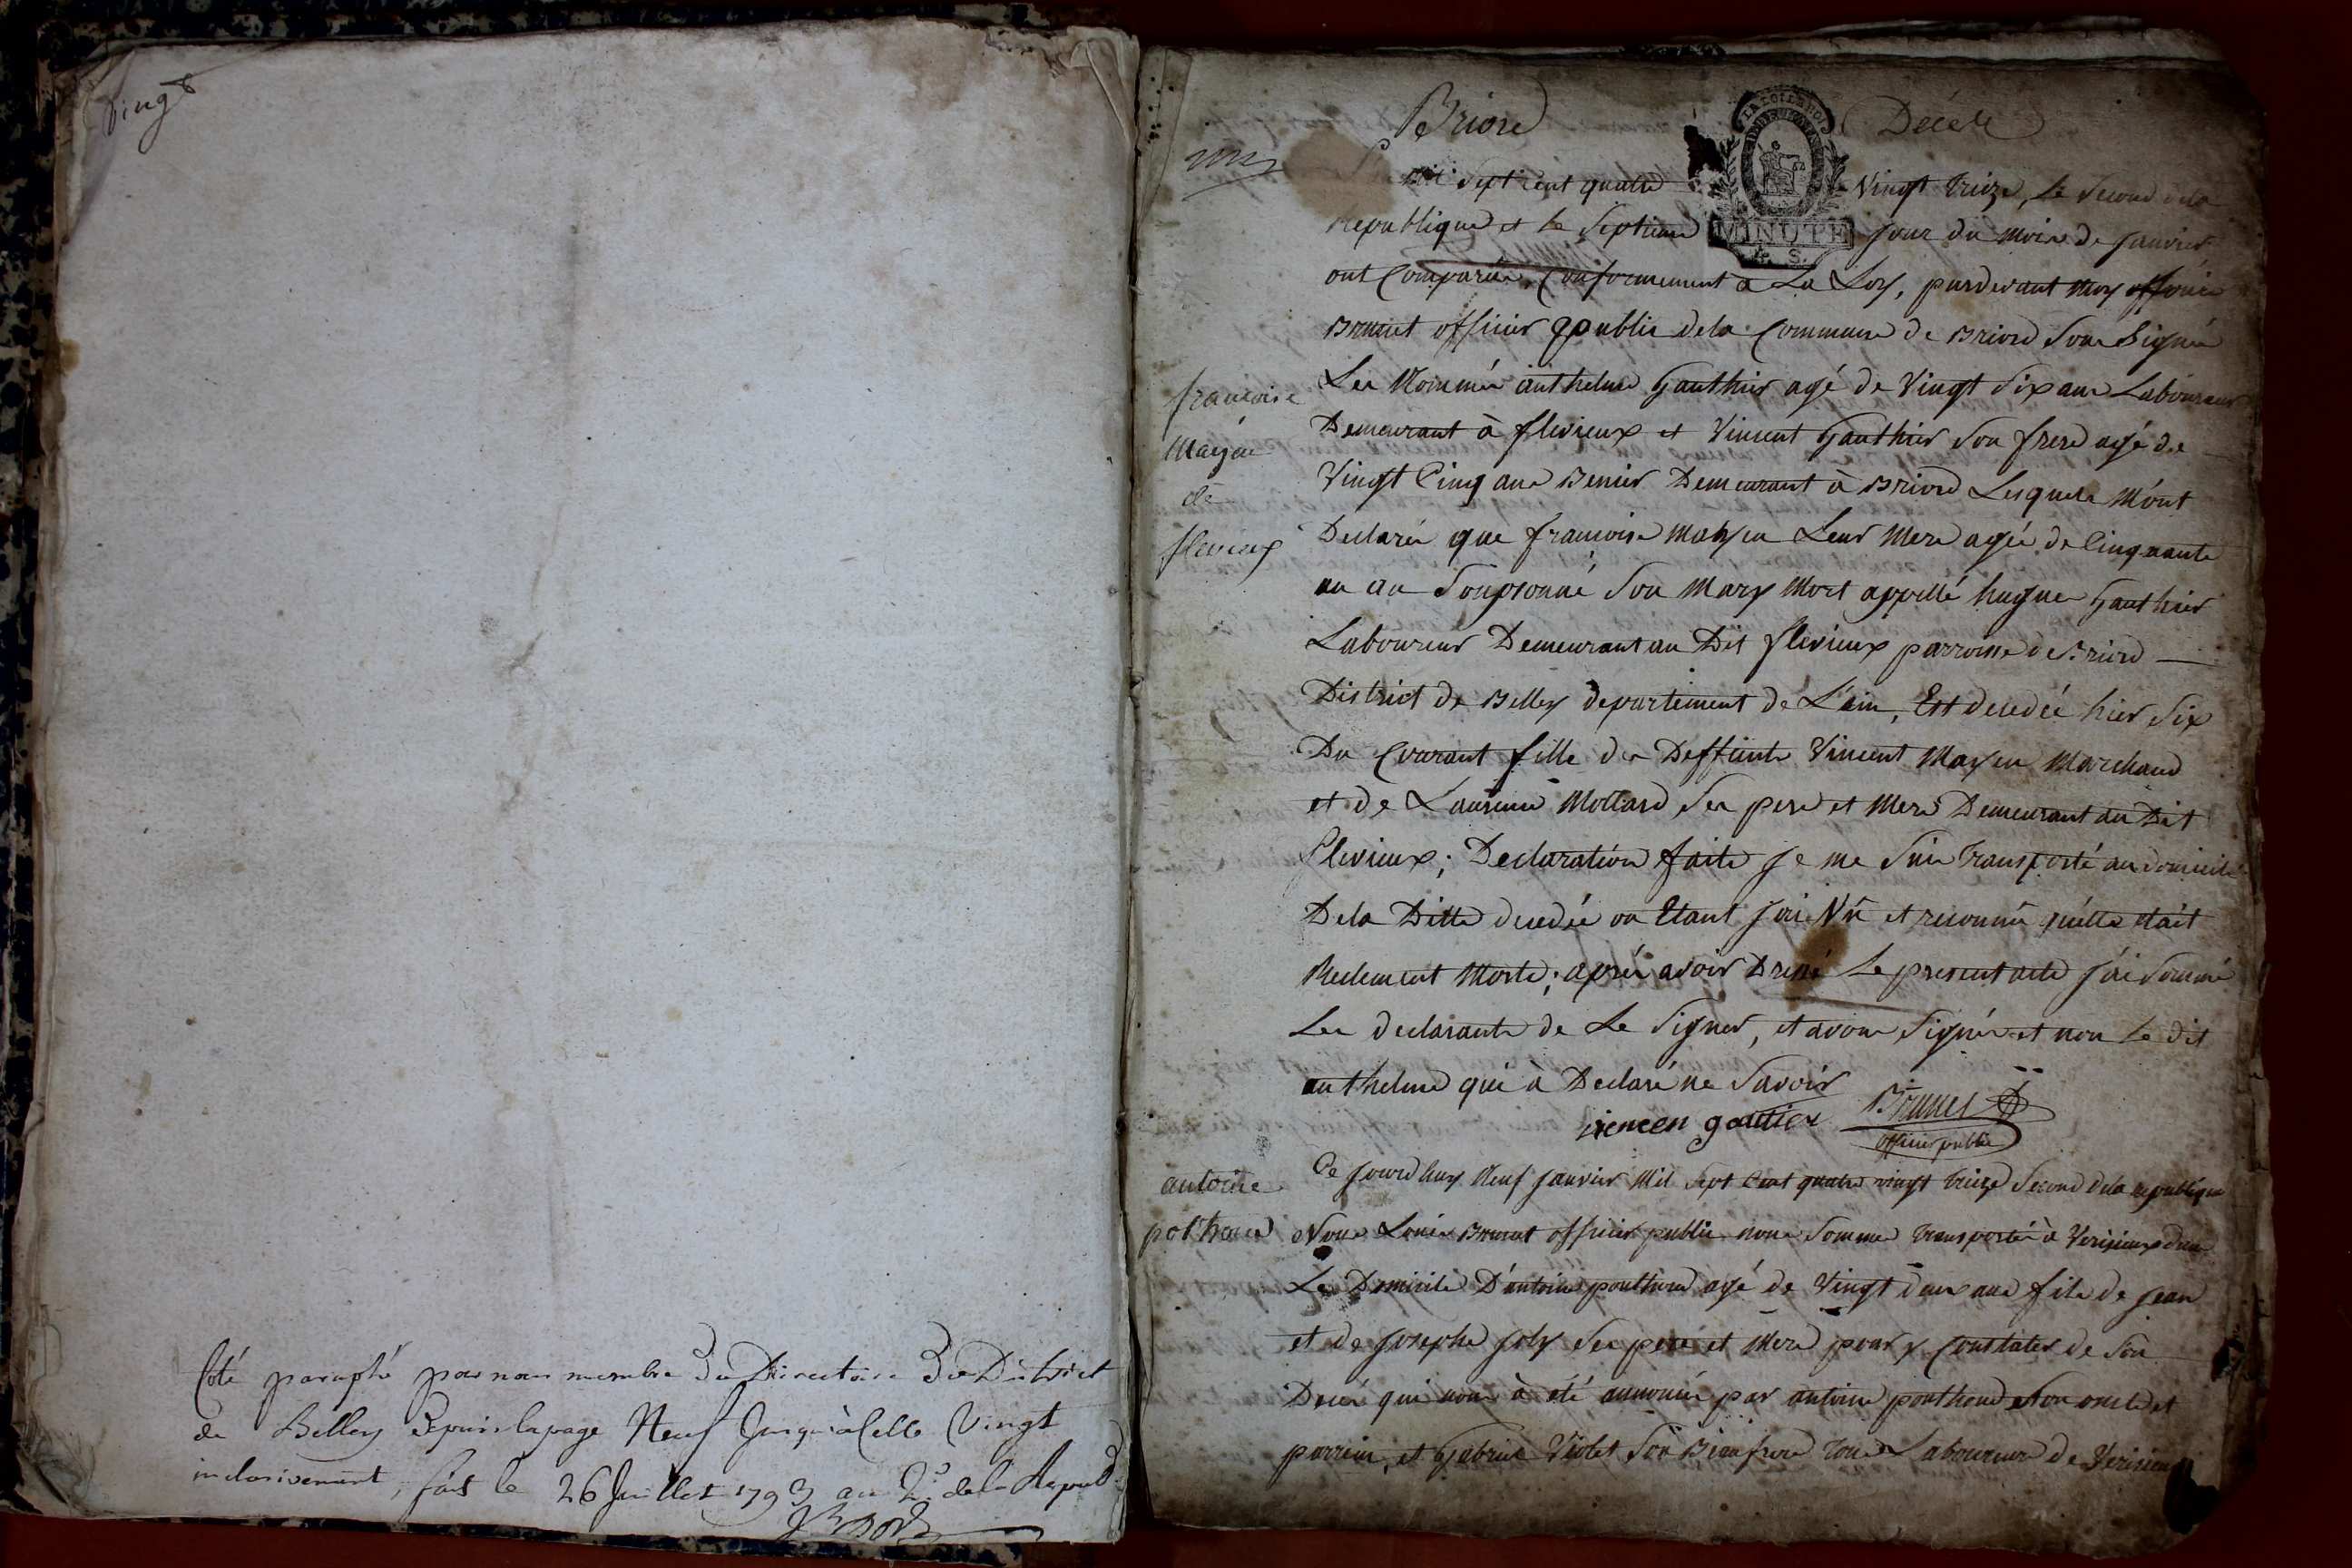 Vingt
Coté paraphé par nous membre du Directoire du District
de Belley depuis la page Neuf Jusqu'à celle Vingt
inclusivement, fait le 26 Juillet 1793 an 2e de la Repub
Briord
Décés
mil sept cent quatre Vingt treize, Le second dela
Republique et Le septieme jour du mois de janvier
MINUTE
4. S.
ont Comparus, Conformement à La Loy, pardevant moy
Brunet officier public dela Commune de Briord Sous Signé
Les Nommés anthelme Gauthier agé de Vingt Six ans Laboureur
Demeurant à flevieux et Vincent Gauthier Son frere agé de
Vingt Cinq ans Demeurant à Briord Lesquels m'ont
Declarés que francoise Mayen Leur Mere agée de Cinquante
un an Son Mary Mort appellé hugues Gauthier
Laboureur Demeurant au Dit flevieux parroisse de Briord
District de Belley departement de L'ain, Est decedée hier Six
Du Courant fille des Deffunts Vincent Mayen Marchand
et de Laurence Mollard Ses pere et Mere Demeurant au Dit
flevieux; Declaration faite je me Suis Transporté au domicile
Dela Ditte decedée ou Etant j'ai Vû et reconnu qu'elle était
Reelement Morte; aprés avoir Dressé Le present acte j'ai Sommé
Les declarants de Le Signer, et avons Signés et non Le dit
anthelme qui à Declaré ne Savoir
vencen gautier Brunet
officier public
francoise
Mayen
de
flevieux
Ce jourdhuy Neuf janvier Mil Sept Cent quatre vingt treize Second dela republique
Nous Louis Brunet officier public nous Sommes transportés à Verizieux dans
Le Domicile D'antoine pouthoud agé de Vingt deux ans fils de jean
et de josephe joly Ses pere et Mere pour y Constater de Son
Decés qui nous à été annoncés par antoine pouthoud Son oncle et
parrein, et Gabriel Violet Son Beaufrere Tous Laboureurs de Verizieux
antoine
pothoud